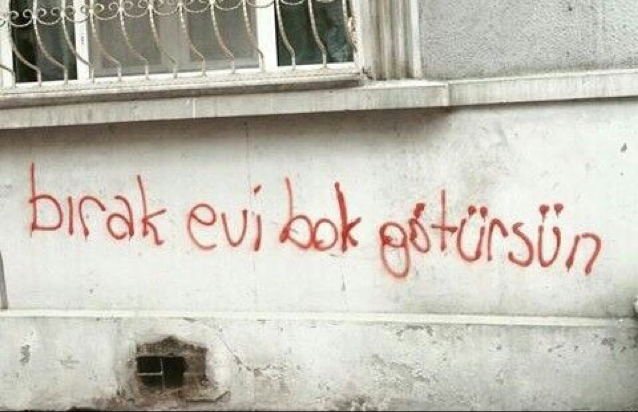 bırak evi bok götürsün